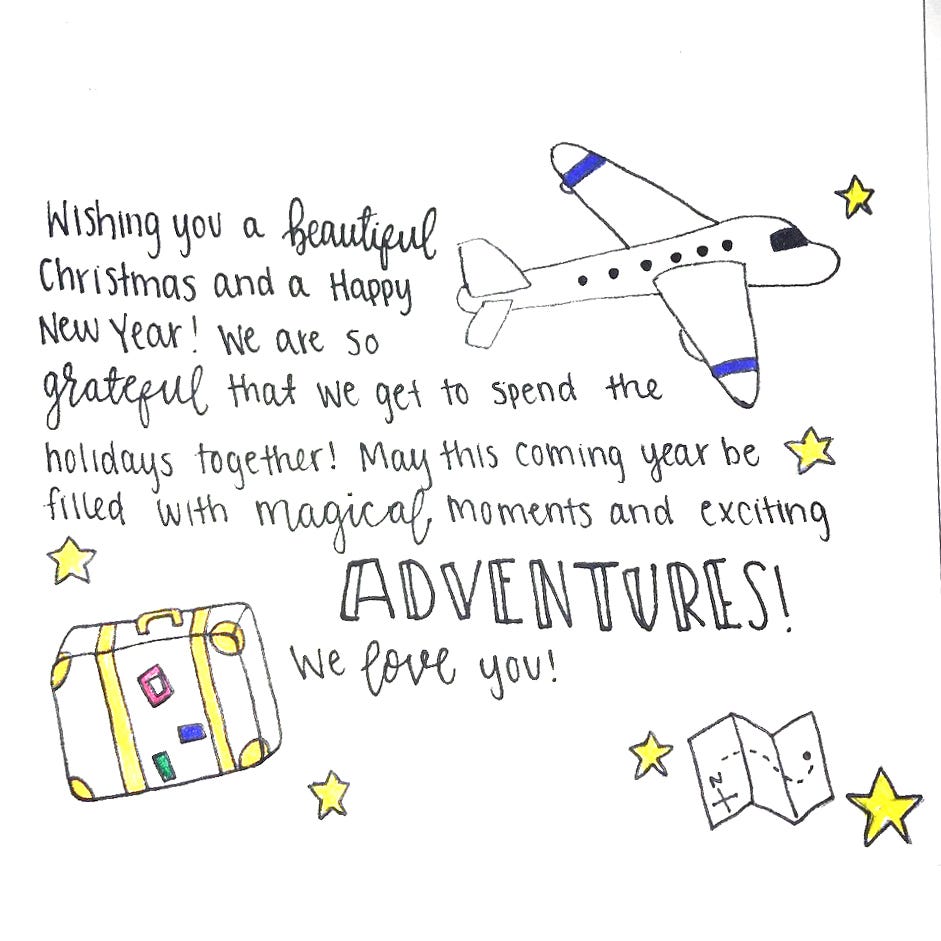 Wishing you a beautiful
Christmas and a Happy
New Year! We are so
grateful that we get to spend the
holidays together! May this coming year be
filled with magical moments and exciting
ADVENTURES!
We love you!
N